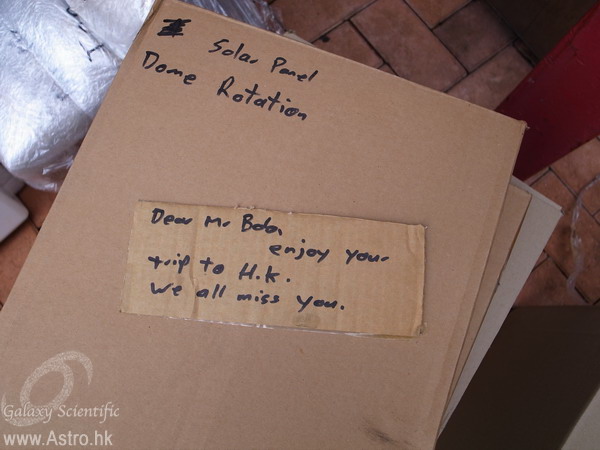 Solar Panel
Dome Rotation
Dear Mr Bob,
enjoy your
trip to H.K.
We all miss you.
Galaxy Scientific
www.Astro.hk